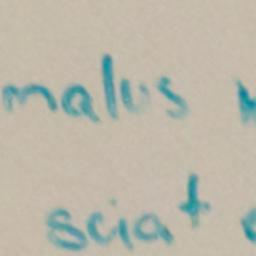 malus
sciat